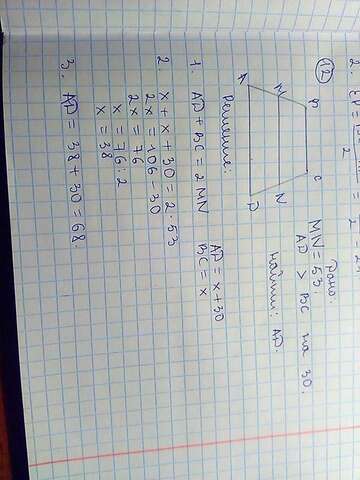 12
Дано:
MN = 53.
AD > BC на 30.
Найти: AD.
B C
M N
A D
Решение:
1. AD + BC = 2MN
AD = x + 30
BC = x
2. x + x + 30 = 2 · 53
2x = 106 - 30
2x = 76
x = 76 : 2
x = 38
3. AD = 38 + 30 = 68.